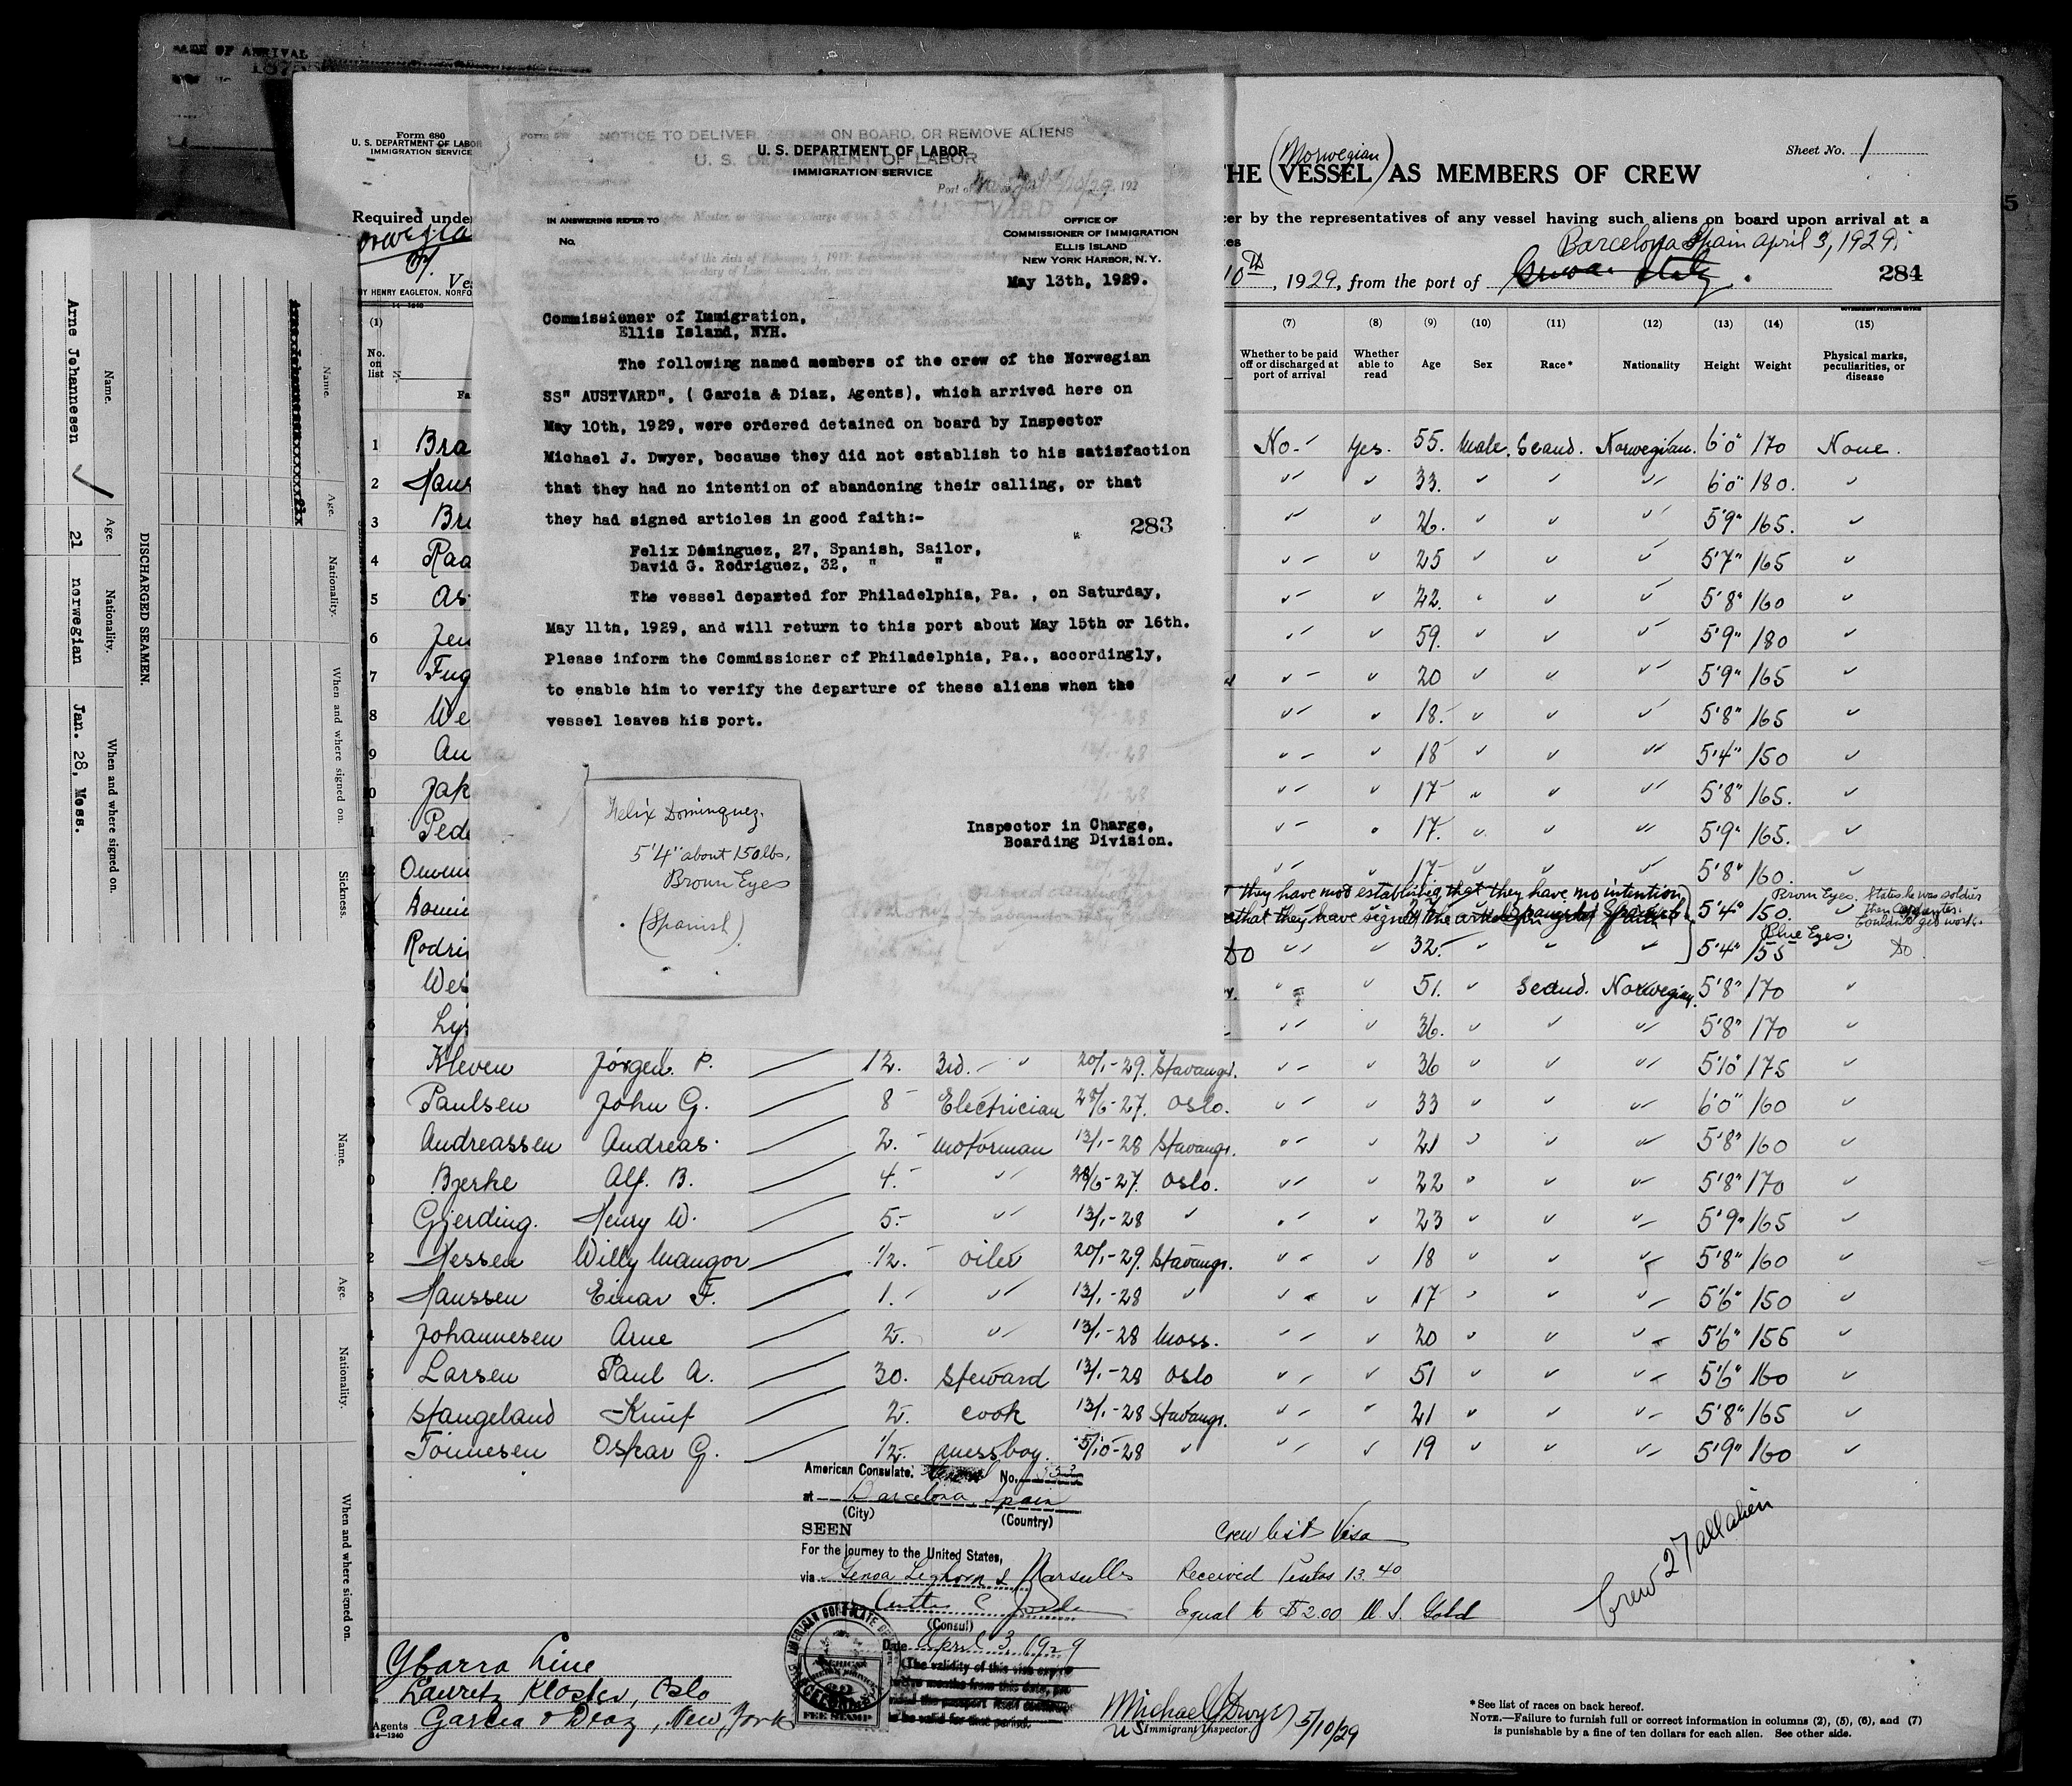 OF ARRIVAL
Form 680
U. S. DEPARTMENT OF LABOR
IMMIGRATION SERVICE
Required unde
BY HENRY EAGLETON, NORFO
(1)
No. on list
NOTICE TO DELIVER, ON BOARD, OR REMOVE ALIENS
U. S. DEPARTMENT OF LABOR
U. S. DEPARTMENT OF LABOR
IMMIGRATION SERVICE
Port of
AUSTVARD
IN ANSWERING REFER TO
No.
OFFICE OF
COMMISSIONER OF IMMIGRATION
ELLIS ISLAND
NEW YORK HARBOR, N.Y.
May 13th, 1929.
Commissioner of Immigration,
Ellis Island, NYH.
The following named members of the crew of the Norwegian
SS" AUSTVARD", ( Garcia & Diaz, Agents), which arrived here on
May 10th, 1929, were ordered detained on board by Inspector
Michael J. Dwyer, because they did not establish to his satisfaction
that they had no intention of abandoning their calling, or that
they had signed articles in good faith:-
283
Felix Dominguez, 27, Spanish, Sailor,
David G. Rodriguez, 32, " "
The vessel departed for Philadelphia, Pa. , on Saturday,
May 11th, 1929, and will return to this port about May 15th or 16th.
Please inform the Commissioner of Philadelphia, Pa., accordingly,
to enable him to verify the departure of these aliens when the
vessel leaves his port.
Inspector in Charge,
Boarding Division.
Felix Dominquez.
5'4" about 150 lbs,
Brown Eyes
(Spanish)
Sheet No. 1
HE (Norwegian VESSEL) AS MEMBERS OF CREW
er by the representatives of any vessel having such aliens on board upon arrival at a
Barcelona Spain april 3, 1929.
10th, 1929, from the port of
284
(7) (8) (9) (10) (11) (12) (13) (14) (15)
Whether to be paid off or discharged at port of arrival
Whether able to read
Age
Sex
Race*
Nationality
Height
Weight
Physical marks, peculiarities, or disease
1 Bra No - yes. 55. Male. Scand. Norwegian. 6'0" 170 None.
2 Hans " " 33. " " " 6'0" 180. "
3 Br " " 26. " " " 5'9" 165. "
4 Raa " " 25 " " " 5'7" 165 "
5 As " " 42. " " " 5'8" 160 "
6 Jen " " 59. " " " 5'9" 180 "
7 Fug " " 20 " " " 5'9" 165 "
8 We " " 18. " " " 5'8" 165 "
9 Au " " 18 " " " 5'4" 150 "
10 Jak " " 17 " " " 5'8" 165. "
11 Ped " " 17. " " " 5'9" 165. "
12 " " 17 " " " 5'8" 160. "
they have not establishing that they have no intention
that they have signed the
Domin 5'4" 150. Brown Eyes. States he was soldier
Couldn't get work.
Rodri Do " " 32. " " " 5'4" 155 Blue Eyes. Do
Wes " " 51. " Scand. Norwegian. 5'8" 170 "
Lys " " 36. " " " 5'8" 170 "
Kleven Jörgen P. 12. 3rd. " 20/1-29. Stavangr. " " 36 " " " 5'10" 175 "
Paulsen John G. 8 Electrician 28/6-27. Oslo. " " 33 " " " 6'0" 160 "
Andreassen Andreas 2. motorman 13/1-28 Stavangr. " " 21 " " " 5'8" 160 "
Bjerke Alf. B. 4. " 28/6-27. Oslo. " " 22 " " " 5'8" 170 "
Gjerding. Henry W. 5. " 13/1-28 " " " 23 " " " 5'9" 165 "
Nessen Willy Mangor 1/2. oiler 20/1-29. Stavangr. " " 18 " " " 5'8" 160 "
Hanssen Einar F. 1. " 13/1-28 " " " 17 " " " 5'6" 150 "
Johannesen Arne 2. " 13/1-28 Moss. " " 20 " " " 5'6" 156 "
Larsen Paul A. 30. Steward 13/1-28 Oslo " " 51 " " " 5'6" 160 "
Stangeland Knut 2. cook 13/1-28 Stavangr. " " 21 " " " 5'8" 165 "
Tönnesen Oskar G. 1/2. messboy. 5/10-28 " " " 19 " " " 5'9" 160 "
American Consulate. No.
at Barcelona, Spain
(City) (Country)
SEEN
For the journey to the United States,
via Genoa Leghorn & Marseilles
(Consul)
Date April 3 1929
The validity of this visa expire
twelve months from this date, pro
vided the passport itself continues
to be valid for that period.
AMERICAN CONSULATE
FEE STAMP
Crew list Visa
Received Pesetas 13.40
Equal to $2.00 U. S. Gold
Crew 27 all alien
Ybarra Line
Lauretz Kloster, Oslo
Agents Garcia & Diaz, New York
14-1240
Michael J Dwyer 5/10/29
US Immigrant Inspector.
*See list of races on back hereof.
NOTE.—Failure to furnish full or correct information in columns (2), (5), (6), and (7)
is punishable by a fine of ten dollars for each alien. See other side.
DISCHARGED SEAMEN.
Name. Age. Nationality. When and where signed on.
Arne Johannesen 21 norwegian Jan. 28, Moss.
Name. Age. Nationality. When and where signed on. Sickness.
Name. Age. Nationality. When and where signed on.